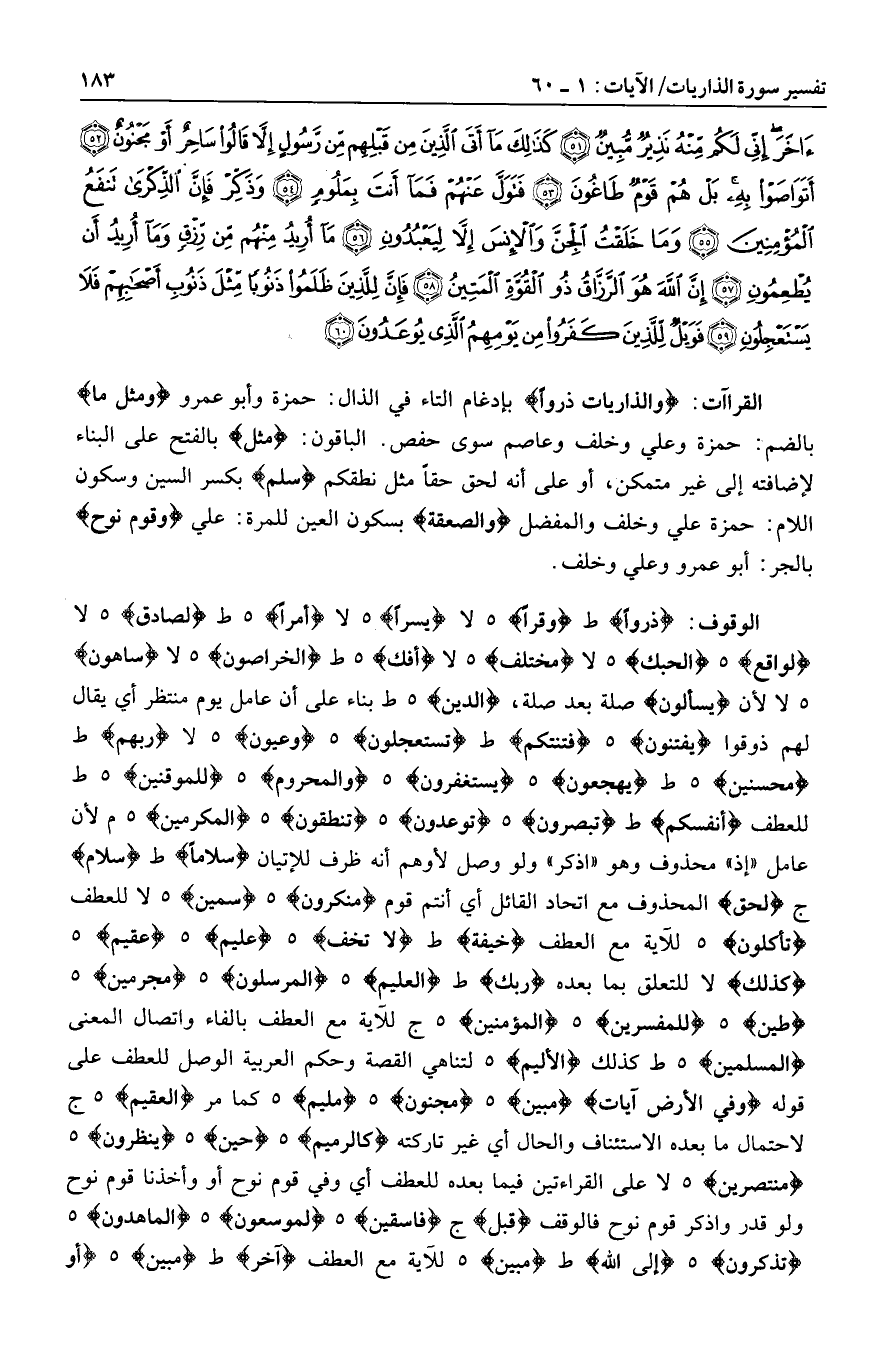 تفسير سورة الذاريات/ الآيات: ١ ـ ٦٠ ١٨٣
ءَاخَرَ إِنِّي لَكُم مِّنْهُ نَذِيرٌ مُّبِينٌ ﴿٥١﴾ كَذَٰلِكَ مَآ أَتَى ٱلَّذِينَ مِن قَبْلِهِم مِّن رَّسُولٍ إِلَّا قَالُوا۟ سَاحِرٌ أَوْ مَجْنُونٌ ﴿٥٢﴾
أَتَوَاصَوْا۟ بِهِۦ بَلْ هُمْ قَوْمٌ طَاغُونَ ﴿٥٣﴾ فَتَوَلَّ عَنْهُمْ فَمَآ أَنتَ بِمَلُومٍ ﴿٥٤﴾ وَذَكِّرْ فَإِنَّ ٱلذِّكْرَىٰ تَنفَعُ
ٱلْمُؤْمِنِينَ ﴿٥٥﴾ وَمَا خَلَقْتُ ٱلْجِنَّ وَٱلْإِنسَ إِلَّا لِيَعْبُدُونِ ﴿٥٦﴾ مَآ أُرِيدُ مِنْهُم مِّن رِّزْقٍ وَمَآ أُرِيدُ أَن
يُطْعِمُونِ ﴿٥٧﴾ إِنَّ ٱللَّهَ هُوَ ٱلرَّزَّاقُ ذُو ٱلْقُوَّةِ ٱلْمَتِينُ ﴿٥٨﴾ فَإِنَّ لِلَّذِينَ ظَلَمُوا۟ ذَنُوبًا مِّثْلَ ذَنُوبِ أَصْحَٰبِهِمْ فَلَا
يَسْتَعْجِلُونِ ﴿٥٩﴾ فَوَيْلٌ لِّلَّذِينَ كَفَرُوا۟ مِن يَوْمِهِمُ ٱلَّذِى يُوعَدُونَ ﴿٦٠﴾
القراآت: ﴿والذاريات ذرواً﴾ بإدغام التاء في الذال: حمزة وأبو عمرو ﴿ومثل ما﴾
بالضم: حمزة وعلي وخلف وعاصم سوى حفص. الباقون: ﴿مثل﴾ بالفتح على البناء
لإضافته إلى غير متمكن، أو على أنه لحق حقاً مثل نطقكم ﴿سلم﴾ بكسر السين وسكون
اللام: حمزة علي وخلف والمفضل ﴿والصعقة﴾ بسكون العين للمرة: علي ﴿وقوم نوح﴾
بالجر: أبو عمرو وعلي وخلف.
الوقوف: ﴿ذرواً﴾ ط ﴿وقراً﴾ ٥ لا ﴿يسراً﴾ ٥ لا ﴿أمراً﴾ ٥ ط ﴿لصادق﴾ ٥ لا
﴿لواقع﴾ ٥ ﴿الحبك﴾ ٥ لا ﴿مختلف﴾ ٥ لا ﴿أفك﴾ ٥ ط ﴿الخراصون﴾ ٥ لا ﴿ساهون﴾
٥ لا لأن ﴿يسألون﴾ صلة بعد صلة، ﴿الدين﴾ ٥ ط بناء على أن عامل يوم منتظر أي يقال
لهم ذوقوا ﴿يفتنون﴾ ٥ ﴿فتنتكم﴾ ط ﴿تستعجلون﴾ ٥ ﴿وعيون﴾ ٥ لا ﴿ربهم﴾ ط
﴿محسنين﴾ ٥ ط ﴿يهجعون﴾ ٥ ﴿يستغفرون﴾ ٥ ﴿والمحروم﴾ ٥ ﴿للموقنين﴾ ٥ ط
للعطف ﴿أنفسكم﴾ ط ﴿تبصرون﴾ ٥ ﴿توعدون﴾ ٥ ﴿تنطقون﴾ ٥ ﴿المكرمين﴾ ٥ م لأن
عامل «إذ» محذوف وهو «اذكر» ولو وصل لأوهم أنه ظرف للإتيان ﴿سلاماً﴾ ط ﴿سلام﴾
ج ﴿لحق﴾ المحذوف مع اتحاد القائل أي أنتم قوم ﴿منكرون﴾ ٥ ﴿سمين﴾ ٥ لا للعطف
﴿تأكلون﴾ ٥ للآية مع العطف ﴿خيفة﴾ ط ﴿لا تخف﴾ ٥ ﴿عليم﴾ ٥ ﴿عقيم﴾ ٥
﴿كذلك﴾ لا للتعلق بما بعده ﴿ربك﴾ ط ﴿العليم﴾ ٥ ﴿المرسلون﴾ ٥ ﴿مجرمين﴾ ٥
﴿طين﴾ ٥ ﴿للمفسرين﴾ ٥ ﴿المؤمنين﴾ ٥ ج للآية مع العطف بالفاء واتصال المعنى
﴿المسلمين﴾ ٥ ط كذلك ﴿الأليم﴾ ٥ لتناهي القصة وحكم العربية الوصل للعطف على
قوله ﴿وفي الأرض آيات﴾ ﴿مبين﴾ ٥ ﴿مجنون﴾ ٥ ﴿مليم﴾ ٥ كما مر ﴿العقيم﴾ ٥ ج
لاحتمال ما بعده الاستئناف والحال أي غير تاركته ﴿كالرميم﴾ ٥ ﴿حين﴾ ٥ ﴿ينظرون﴾ ٥
﴿منتصرين﴾ ٥ لا على القراءتين فيما بعده للعطف أي وفي قوم نوح أو وأخذنا قوم نوح
ولو قدر واذكر قوم نوح فالوقف ﴿قبل﴾ ج ﴿فاسقين﴾ ٥ ﴿لموسعون﴾ ٥ ﴿الماهدون﴾ ٥
﴿تذكرون﴾ ٥ ﴿إلى الله﴾ ط ﴿مبين﴾ ٥ للآية مع العطف ﴿آخر﴾ ط ﴿مبين﴾ ٥ ﴿أو